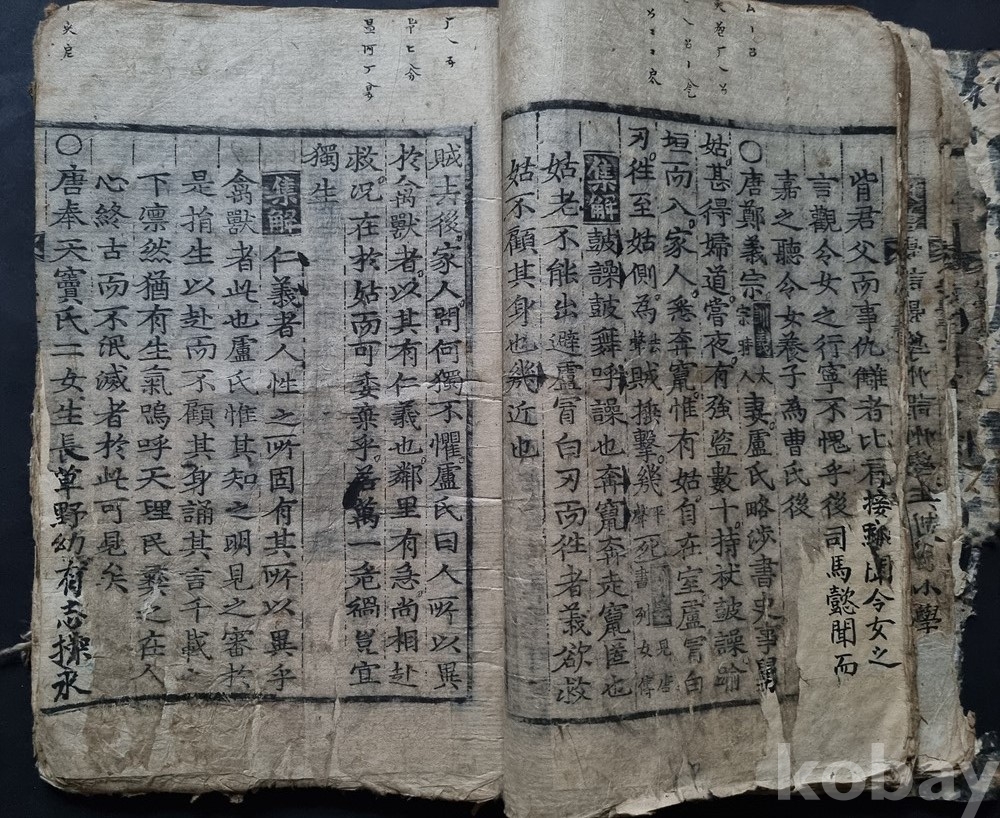 背君父而事仇讎者比有接踵聞令女之
言觀令女之行寧不愧乎後司馬懿聞而
嘉之聽令女養子為曹氏後
○唐鄭義宗妻盧氏略涉書史事舅
姑甚得婦道嘗夜有強盜數十持杖鼓譟踰
垣而入家人悉奔竄惟有姑自在室盧冒白
刃往至姑側為賊捶擊幾死
集解鼓譟鼓舞呼譟也奔竄奔走竄匿也
姑老不能出避盧冒白刃而往者義欲救
姑不顧其身也幾近也
賊去後家人問何獨不懼盧氏曰人所以異
於禽獸者以其有仁義也鄰里有急尚相赴
救況在於姑而可委棄乎若萬一危禍豈宜
獨生
集解仁義者人性之所固有其所以異乎
禽獸者此也盧氏惟其知之明見之審於
是捐生以赴而不顧其身誦其言千載之
下凛然猶有生氣嗚呼天理民彝之在人
心終古而不泯滅者於此可見矣
○唐奉天竇氏二女生長草野幼有志操永
小學
kobay